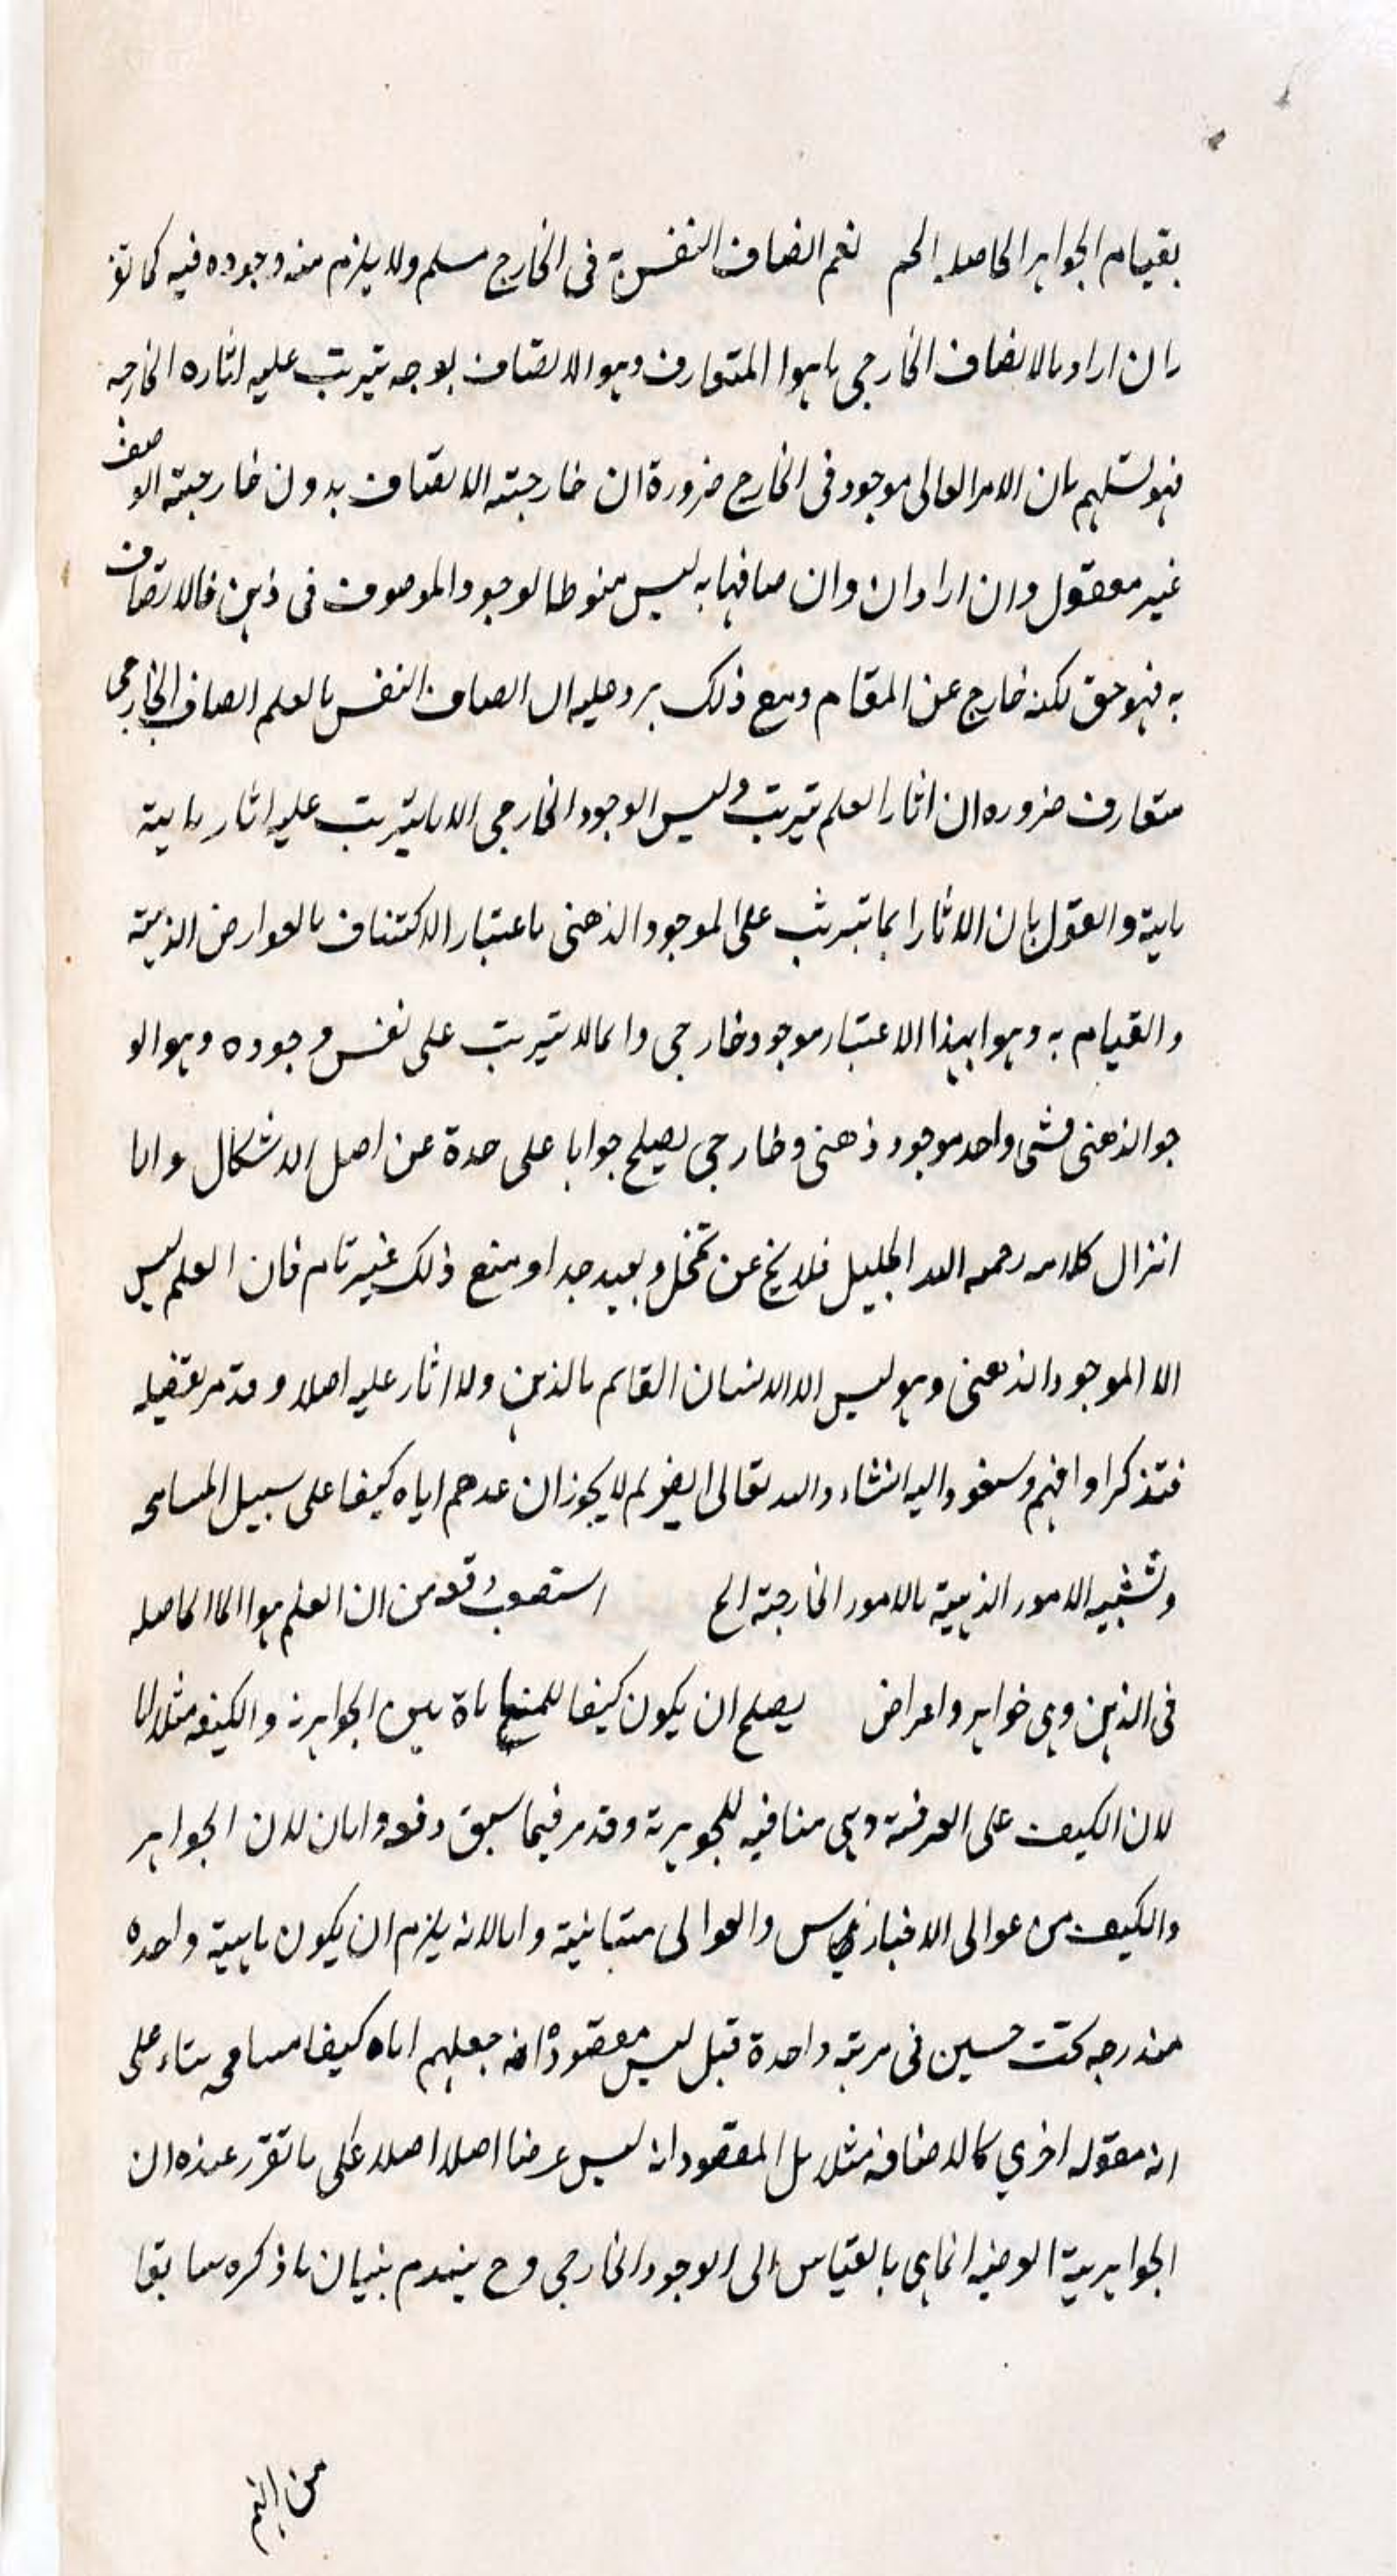 بقيام الجواهر الحاصلہ الخ نعم اتصاف النفس بہ فى الخارج مسلم ولا يلزم منہ وجوده فيہ كما تو
بان اراد بالاتصاف الخارجى ما هوا المتعارف وهو الاتصاف بوجہ تيرتب عليہ اثاره الخارجيہ
فهو تسليم بان الامر العالى موجود فى الخارج ضرورة ان خارجيتہ الاتصاف بدون خارجيتہ الوصف
غير معقول وان اراد ان وان صافها بہ ليس منوطا لوجود الموصوف فى ذهن فالاتصاف
بہ فهو حق لكنہ خارج عن المقام ومع ذلك يرد عليہ ان اتصاف النفس بالعلم اتصاف الخارجى
متعارف ضروره ان اثار العلم تيرتب وليس الوجود الخارجى الا ما يترتب عليہ اثار ماہية
ماہية والقول بان الاثار انما تيرتب على الموجود الذهنى باعتبار الاكتناف بالعوارض الذہنيۃ
والقيام بہ وهوا بهذا الاعتبار موجود خارجى وانما لا تيرتب على نفس وجوده وهو الو
جو الذهنى فشى واحد موجود ذهنى وخارجى يصلح جوابا على حدة عن اصل الاشكال واما
انزال كلامہ رحمہ اللہ الجليل فلا يخ عن تمحل وبعيد جدا ومنع ذلك غير تام فان العلم ليس
الا الموجود الذهنى وهو ليس الا الانسان القايم بالذهن ولا اثار عليہ اصلا وقد مر تفصيلہ
فتذكرا وافهم وسنعود اليہ انشاء واللہ تعالى ايض لم لا يجوز ان عدهم اياه كيفا على سبيل المسامحہ
وتشبيہ الامور الذہنيۃ بالامور الخارجيۃ الخ استصعب وقعہ من ان العلم هوا الحاصلہ
فى الذهن وہى خواہر واعراض يصلح ان يكون كيفا للمنافاة بين الجواہرية والكيفہ مثلا اما
لان الكيف على العرضۃ وہى منافيہ للجوہرية وقد مر فيما سبق دفعہ واما ن لان الجواہر
والكيف من عوالى الاجناس والعوالى متبانيۃ واما لانہ يلزم ان يكون ماہيۃ واحده
مندرجہ تحت جنسين فى مرتبہ واحدة قبل ليس مقصودا انہ جعلهم اياه كيفا مسامحہ بناء على
انہ مقولہ اخرى كالاضافہ مثلا بل المقصود انہ ليس عرضا اصلا اصلا على ما تقرر عنده ان
الجواہريۃ الوضيہ انماہى بالقياس الى الوجود الخارجى وح ينهدم بنيان ما ذكره سابقا
من انہم